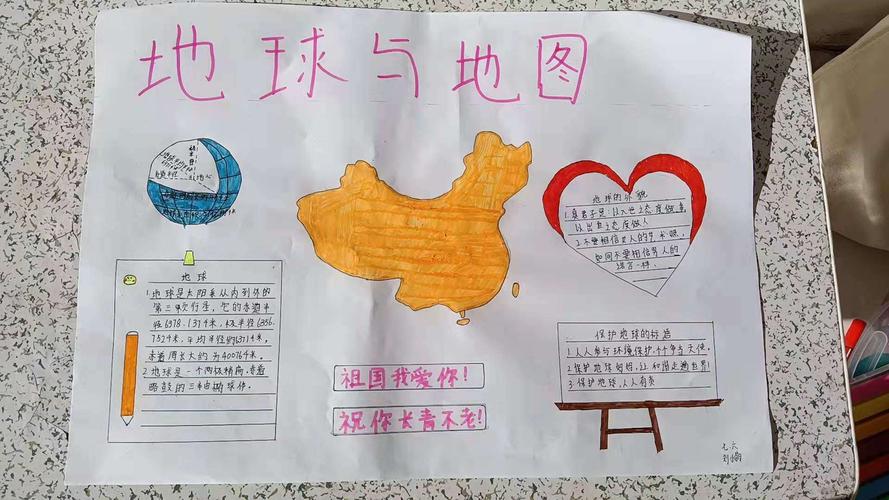 地球与地图
地球
1.地球是太阳系从内到外的
第三颗行星,它的赤道半
径6378.1374米,极半径6356.
7524米,平均半径约63714米,
赤道周长大约为400764米.
2.地球是一个两极稍扁,赤道
略鼓的三
球体.
祖国我爱你!
祝你长青不老!
地球的外貌
1.真君子是:以入世之态度做事,
以出世之态度做人
2.不要相信
人的
如同不要相信男人的
一样.
保护地球的标语
1.人人参与环境保护,个个争当天使.
2.保护地球
,让和谐走遍世界!
3.保护地球,人人有责
七六
刘